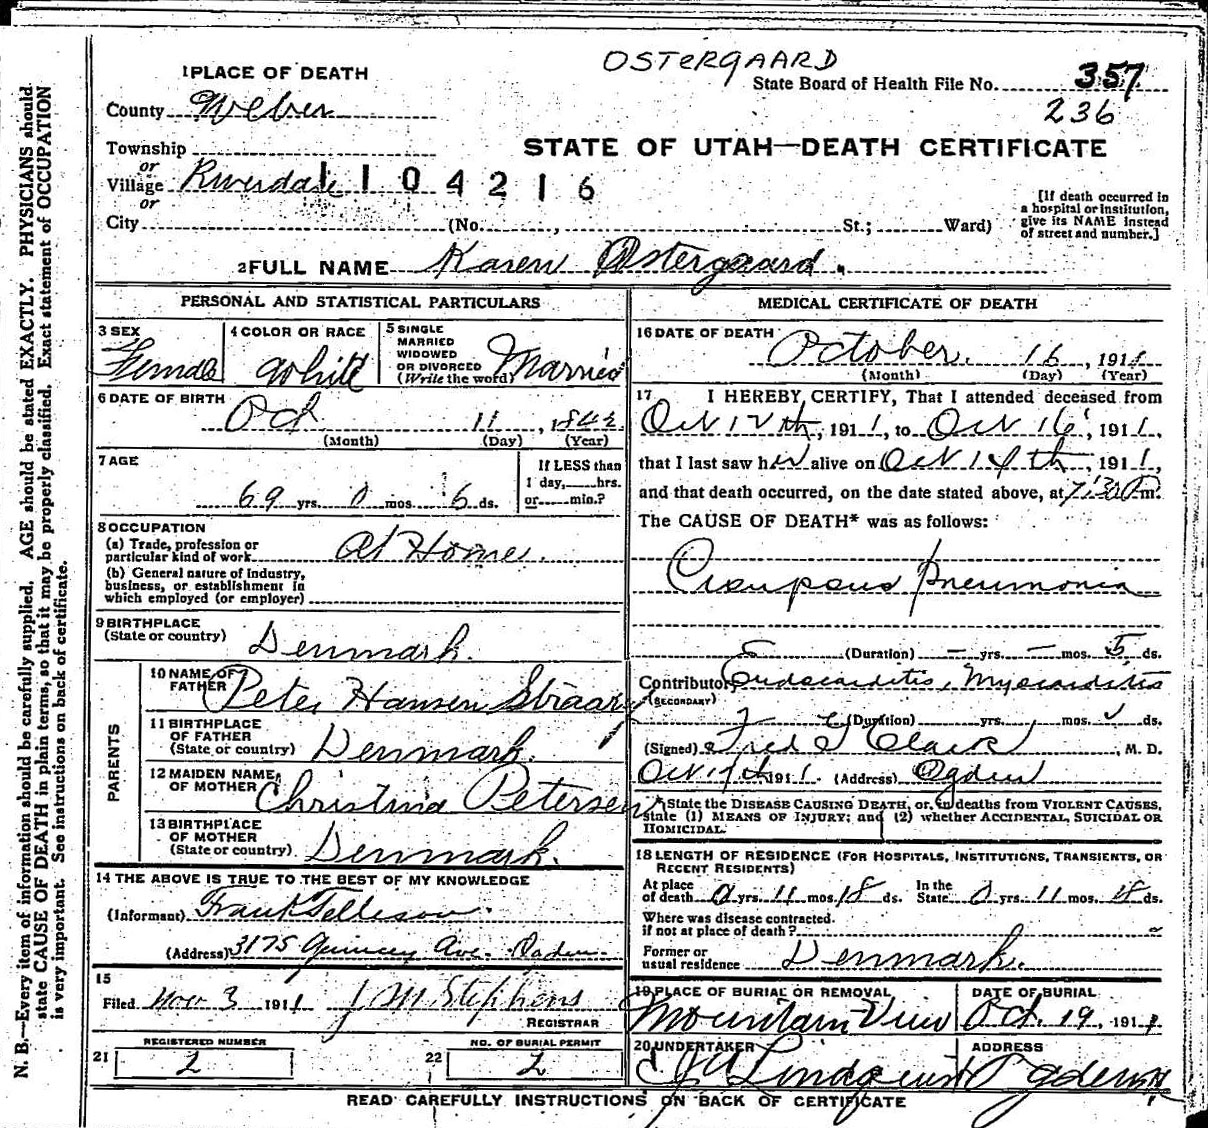 OSTERGAARD
1 PLACE OF DEATH
State Board of Health File No. 357
236
County Weber
STATE OF UTAH—DEATH CERTIFICATE
Township
or
Village Riverdale 1104216
or
City (No. , St.; Ward)
[If death occurred in
a hospital or institution,
give its NAME instead
of street and number.]
2 FULL NAME Karen Ostergaard.
PERSONAL AND STATISTICAL PARTICULARS
3 SEX
Female
4 COLOR OR RACE
White
5 SINGLE
MARRIED
WIDOWED
OR DIVORCED
(Write the word) Married
6 DATE OF BIRTH
Oct. 11, 1842
(Month) (Day) (Year)
7 AGE
69 yrs. 0 mos. 6 ds.
If LESS than
1 day, hrs.
or min.?
8 OCCUPATION
(a) Trade, profession or
particular kind of work At Home.
(b) General nature of industry,
business, or establishment in
which employed (or employer)
9 BIRTHPLACE
(State or country) Denmark.
PARENTS
10 NAME OF
FATHER Peter Hansen
11 BIRTHPLACE
OF FATHER
(State or country) Denmark.
12 MAIDEN NAME
OF MOTHER Christina Petersen
13 BIRTHPLACE
OF MOTHER
(State or country) Denmark.
14 THE ABOVE IS TRUE TO THE BEST OF MY KNOWLEDGE
(Informant) Frank Telleson.
(Address) 3175 Quincey Ave. Ogden
15
Filed Nov 3 1911 J M Stephens
REGISTRAR
21 REGISTERED NUMBER
2
22 NO. OF BURIAL PERMIT
2
MEDICAL CERTIFICATE OF DEATH
16 DATE OF DEATH October. 16, 1911
(Month) (Day) (Year)
17 I HEREBY CERTIFY, That I attended deceased from
Oct 12th, 1911, to Oct 16, 1911,
that I last saw her alive on Oct 14th, 1911,
and that death occurred, on the date stated above, at 7:30 P m.
The CAUSE OF DEATH* was as follows:
Croupous Pneumonia
(Duration) — yrs. — mos. 5 ds.
Contributory Endocarditis, Myocarditis
(SECONDARY)
(Duration) yrs. mos. ds.
(Signed) Fred Clark, M. D.
Oct 17th 1911. (Address) Ogden
*State the DISEASE CAUSING DEATH, or, in deaths from VIOLENT CAUSES,
state (1) MEANS OF INJURY; and (2) whether ACCIDENTAL, SUICIDAL OR
HOMICIDAL.
18 LENGTH OF RESIDENCE (FOR HOSPITALS, INSTITUTIONS, TRANSIENTS, OR
RECENT RESIDENTS)
At place
of death 0 yrs. 11 mos. 18 ds.
In the
State 0 yrs. 11 mos. 18 ds.
Where was disease contracted.
if not at place of death?
Former or
usual residence Denmark.
19 PLACE OF BURIAL OR REMOVAL
Mountain View
DATE OF BURIAL
Oct. 19, 1911
20 UNDERTAKER
Lindquist
ADDRESS
Ogden
READ CAREFULLY INSTRUCTIONS ON BACK OF CERTIFICATE
N. B.—Every item of information should be carefully supplied. AGE should be stated EXACTLY. PHYSICIANS should
state CAUSE OF DEATH in plain terms, so that it may be properly classified. Exact statement of OCCUPATION
is very important. See instructions on back of certificate.